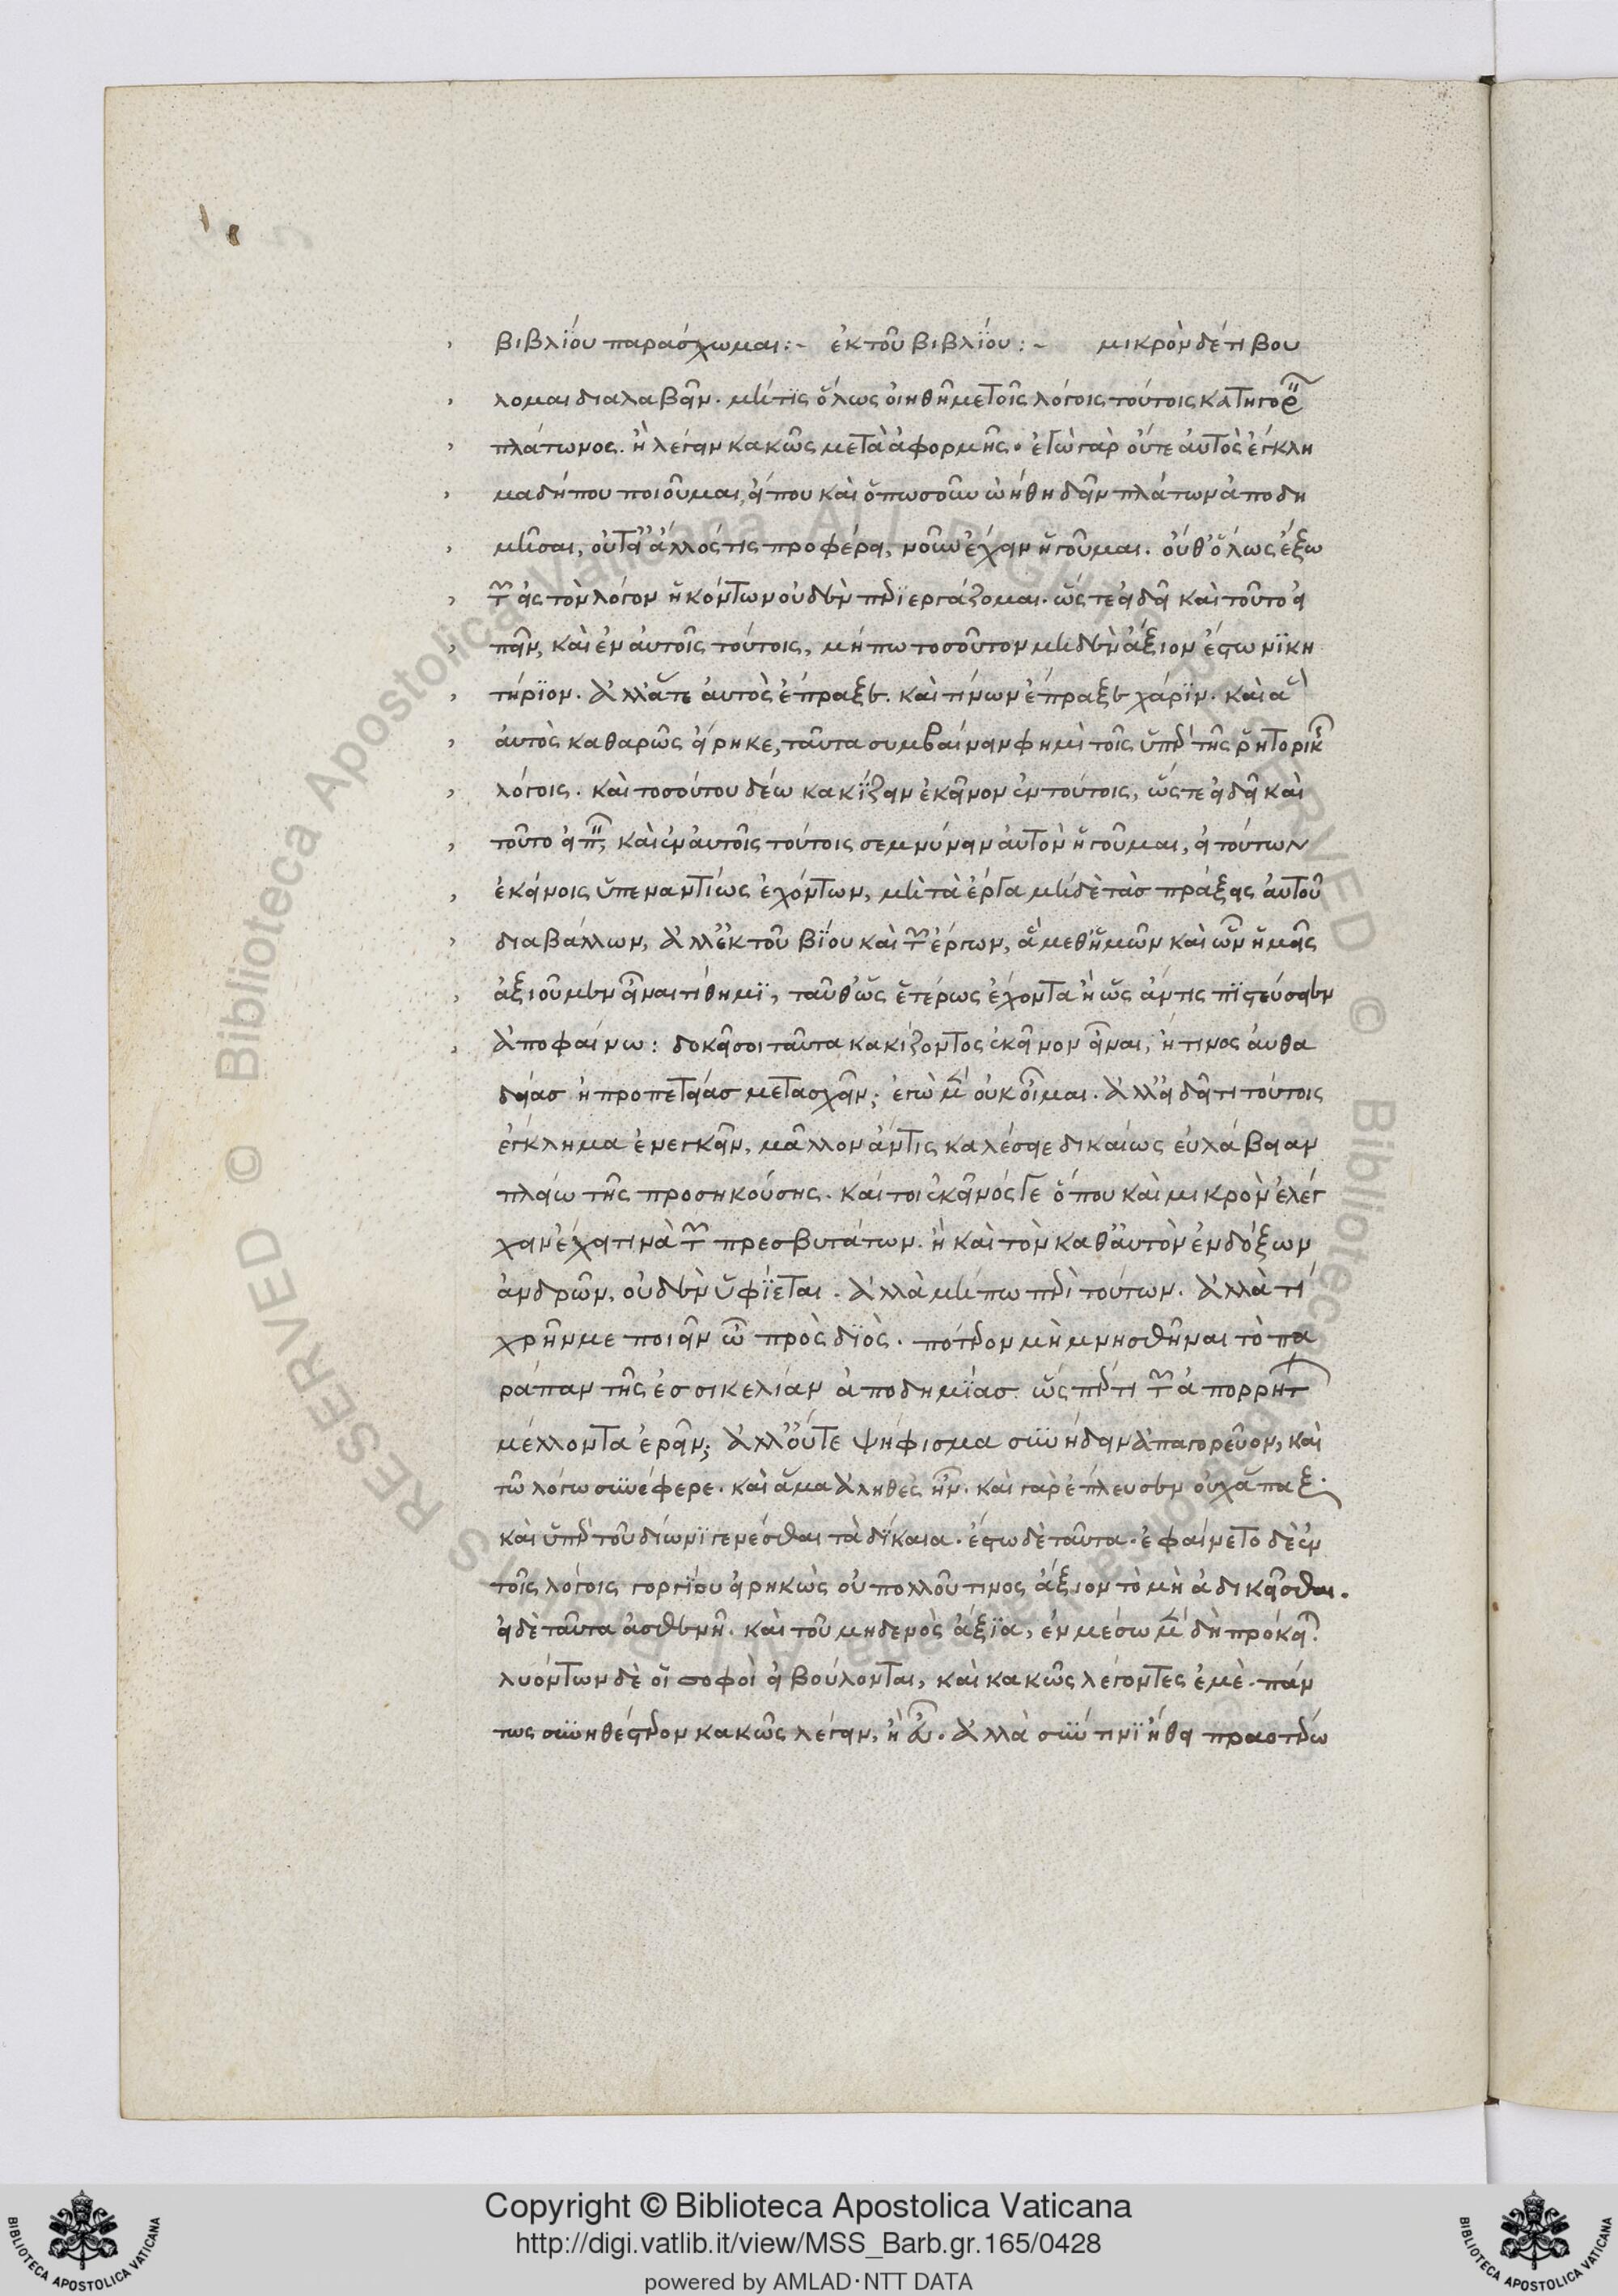 βιβλίου παράσχωμαι :~ ἐκ τοῦ βιβλίου :~ μικρὸν δέ τι βού
λομαι διαλαβεῖν. μή τις ὅλως οἰηθῆ με τοῖς λόγοις τούτοις κατηγορ
πλάτωνος. ἢ λέγειν κακῶς μετὰ ἀφορμῆς. ἐγὼ γὰρ οὔτε αὐτὸς ἔγκλη
μα δήπου ποιοῦμαι, εἴ που καὶ ὁπωσοῦν ὠήθη δεῖν πλάτων ἀποδη
μῆσαι, οὔτ' εἰ ἄλλός τις προφέρει, νοῦν ἔχειν ἡγοῦμαι. οὔθ' ὅλως ἔξω
τῶν εἰς τὸν λόγον ἡκόντων οὐδὲν περιεργάζομαι. ὥστε εἰ δεῖ καὶ τοῦτο εἰ
πεῖν, καὶ ἐν αὐτοῖς τούτοις, μήπω τοσοῦτον μηδὲν ἄξιον ἔστω νικη
τήριον. ἀλλ' ἅ τε αὐτὸς ἔπραξε. καὶ τίνων ἔπραξε χάριν. καὶ ἃ
αὐτὸς καθαρῶς εἴρηκε, ταῦτα συμβαίνειν φημὶ τοῖς ὑπὲρ τῆς ῥητορικ
λόγοις. καὶ τοσούτου δέω κακίζειν ἐκεῖνον ἐν τούτοις, ὥστε εἰ δεῖ καὶ
τοῦτο εἰπ, καὶ ἐν αὐτοῖς τούτοις σεμνύνειν αὐτὸν ἡγοῦμαι, εἰ τούτων
ἐκείνοις ὑπεναντίως ἐχόντων, μὴ τὰ ἔργα μηδὲ τὰσ πράξεις αὐτοῦ
διαβάλλων, ἀλλ' ἐκ τοῦ βίου καὶ τῶν ἔργων, ἃ μεθ' ἡμῶν καὶ ὧν ἡμᾶς
ἀξιοῦμεν εἶναι τίθημι, ταῦθ' ὡς ἑτέρως ἔχοντα ἢ ὡς ἄν τις πιστεύσειεν
ἀποφαίνω : δοκεῖ σοι ταῦτα κακίζοντος ἐκεῖνον εἶναι, ἤ τινος αὐθα
δείασ ἢ προπετείασ μετασχεῖν; ἐγὼ μὲν οὐκ οἶμαι. ἀλλ' εἰ δεῖ τι τούτοις
ἔγκλημα ἐνεγκεῖν, μᾶλλον ἄν τις καλέσειε δικαίως εὐλάβειαν
πλείω τῆς προσηκούσης. καίτοι ἐκεῖνός γε ὅπου καὶ μικρὸν ἐλέγ
χειν ἔχει τινὰ τῶν πρεσβυτάτων. ἢ καὶ τὸν καθ' αὑτὸν ἐνδόξων
ἀνδρῶν, οὐδὲν ὑφίεται. ἀλλὰ μήπω περὶ τούτων. ἀλλὰ τί
χρῆν με ποιεῖν ὦ πρὸς διὸς. πότερον μὴ μνησθῆναι τὸ πα
ράπαν τῆς ἐσ σικελίαν ἀποδημίασ. ὥσπερ τι τῶν ἀπορρήτ
μέλλοντα ἐρεῖν; ἀλλ' οὔτε ψήφισμα συνήδειν ἀπαγορεῦον, καὶ
τῶ λόγω συνέφερε. καὶ ἅμα ἀληθὲς ἦν. καὶ γὰρ ἔπλευσεν οὐχ ἅπαξ.
καὶ ὑπὲρ τοῦ δίωνι γενέσθαι τὰ δίκαια. ἔστω δὲ ταῦτα. ἐφαίνετο δὲ ἐν
τοῖς λόγοις γοργίου εἰρηκὼς οὐ πολλοῦ τινος ἄξιον τὸ μὴ ἀδικεῖσθαι.
εἰ δὲ ταῦτα ἀσθενῆ. καὶ τοῦ μηδενὸς ἄξια, ἐν μέσω μὲν δὴ πρόκει.
λυόντων δὲ οἱ σοφοὶ εἰ βούλονται, καὶ κακῶς λέγοντες ἐμὲ. πάν
τως συνηθέστερον κακῶς λέγειν, ἢ εὖ. ἀλλὰ σύν τινι ἤθει πραοτέρω
Copyright © Biblioteca Apostolica Vaticana
http://digi.vatlib.it/view/MSS_Barb.gr.165/0428
powered by AMLAD·NTT DATA